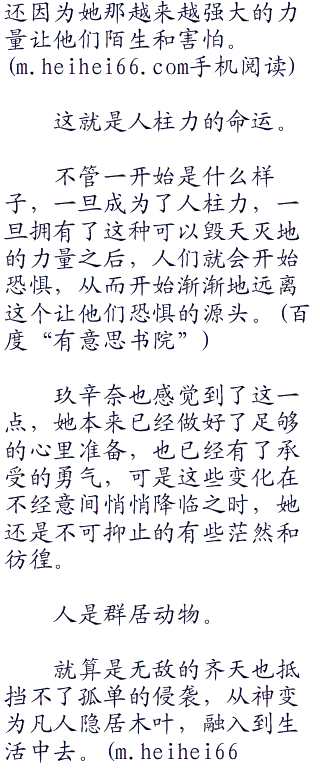 还因为她那越来越强大的力
量让他们陌生和害怕。
(m.heihei66.com手机阅读)
这就是人柱力的命运。
不管一开始是什么样
子，一旦成为了人柱力，一
旦拥有了这种可以毁天灭地
的力量之后，人们就会开始
恐惧，从而开始渐渐地远离
这个让他们恐惧的源头。(百
度“有意思书院”)
玖辛奈也感觉到了这一
点，她本来已经做好了足够
的心里准备，也已经有了承
受的勇气，可是这些变化在
不经意间悄悄降临之时，她
还是不可抑止的有些茫然和
彷徨。
人是群居动物。
就算是无敌的齐天也抵
挡不了孤单的侵袭，从神变
为凡人隐居木叶，融入到生
活中去。(m.heihei66